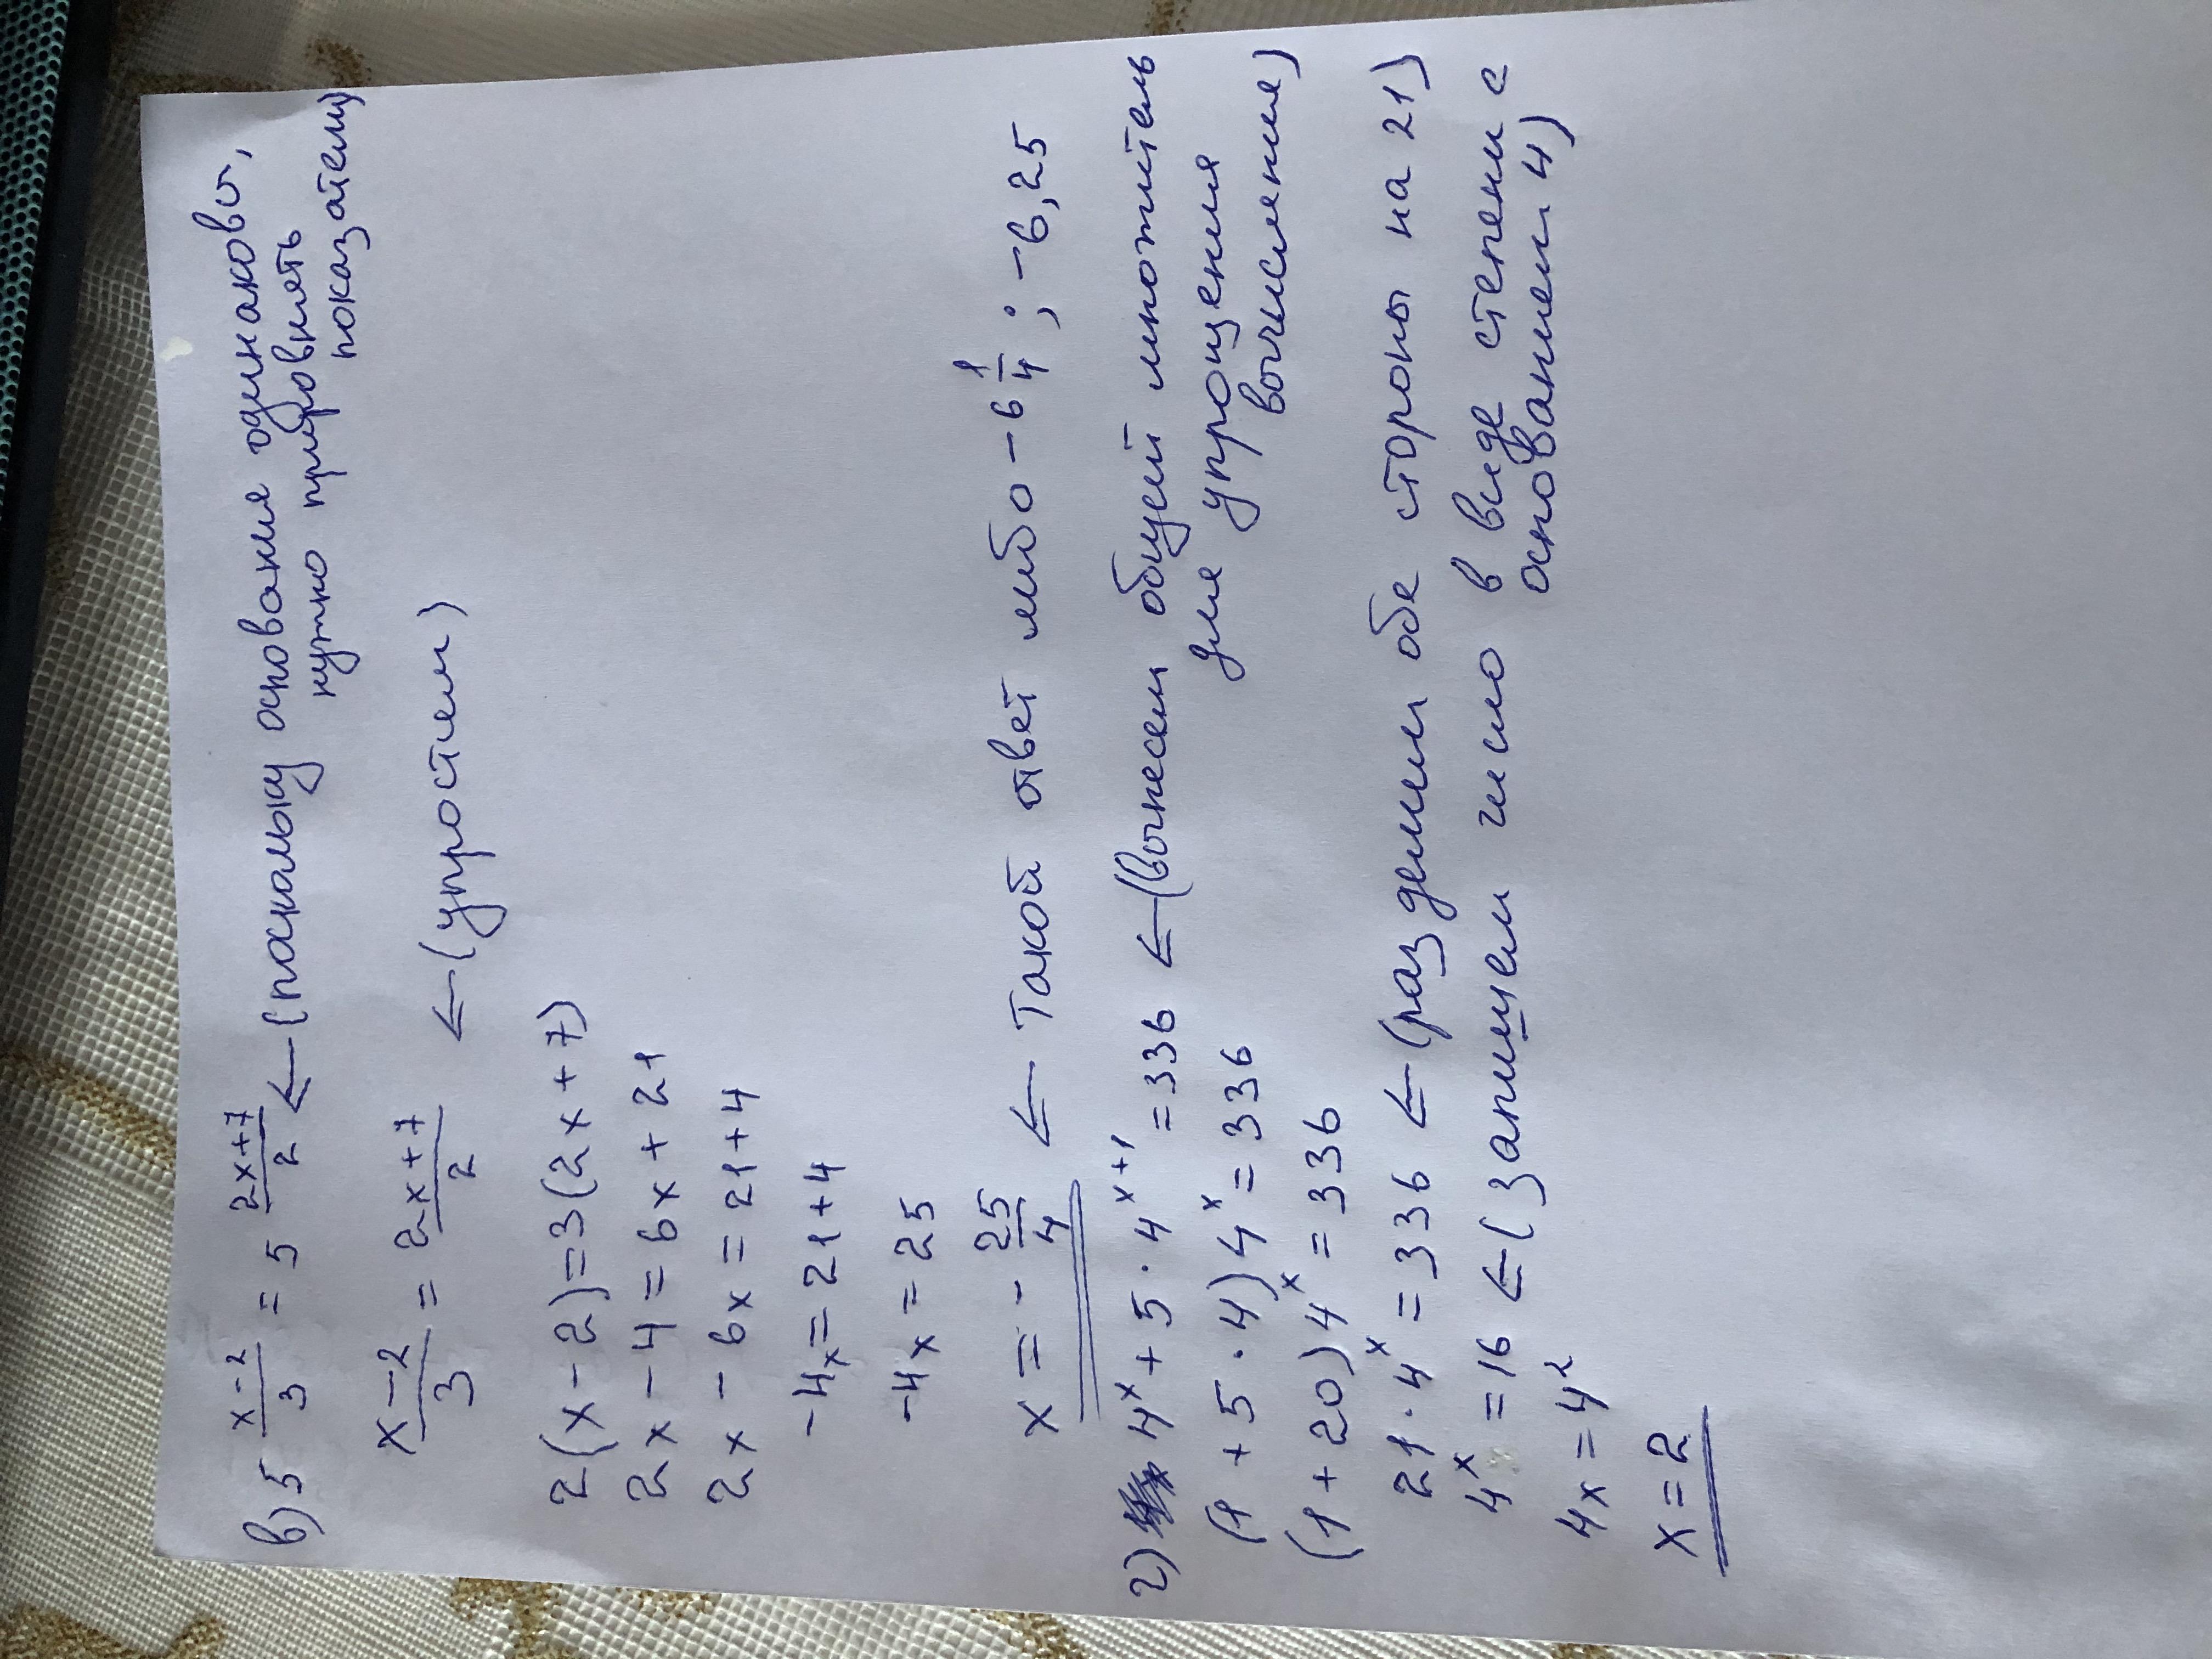 в) 5^((x-2)/3) = 5^((2x+7)/2) ← (поскольку основания одинаковы,
нужно прировнять
показатели)
(x-2)/3 = (2x+7)/2 ← (упростим)
2(x-2)=3(2x+7)
2x-4=6x+21
2x-6x=21+4
-4x=21+4
-4x=25
x=-25/4 ← Такой ответ либо -6 1/4; -6,25
г) 4^x+5·4^(x+1)=336 ← (вынесем общий множитель
для упрощения
вычисления)
(1+5·4)4^x=336
(1+20)4^x=336
21·4^x=336 ← (разделим обе стороны на 21)
4^x=16 ← (запишем число в виде степени с
основанием 4)
4x=4^2
x=2